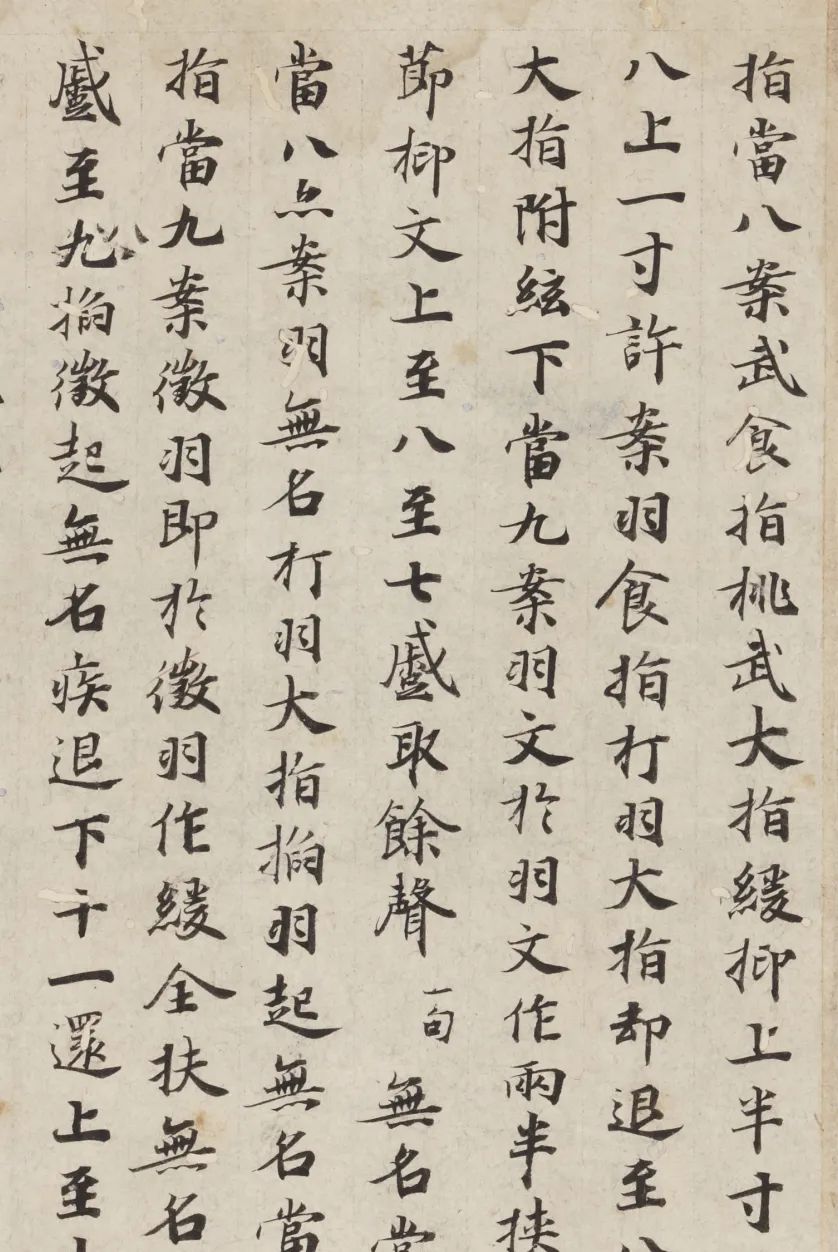 指當八案武食指桃武大指緩抑上半寸
八上一寸許案羽食指打羽大指却退至
大指附絃下當九案羽文於羽文作兩半扶
莭抑文上至八至七蹙取餘聲 一句 無名當
當八亦案羽無名打羽大指掐羽起無名當
指當九案徵羽即於徵羽作緩全扶無名
蹙至九掐徵起無名疾退下十一還上至